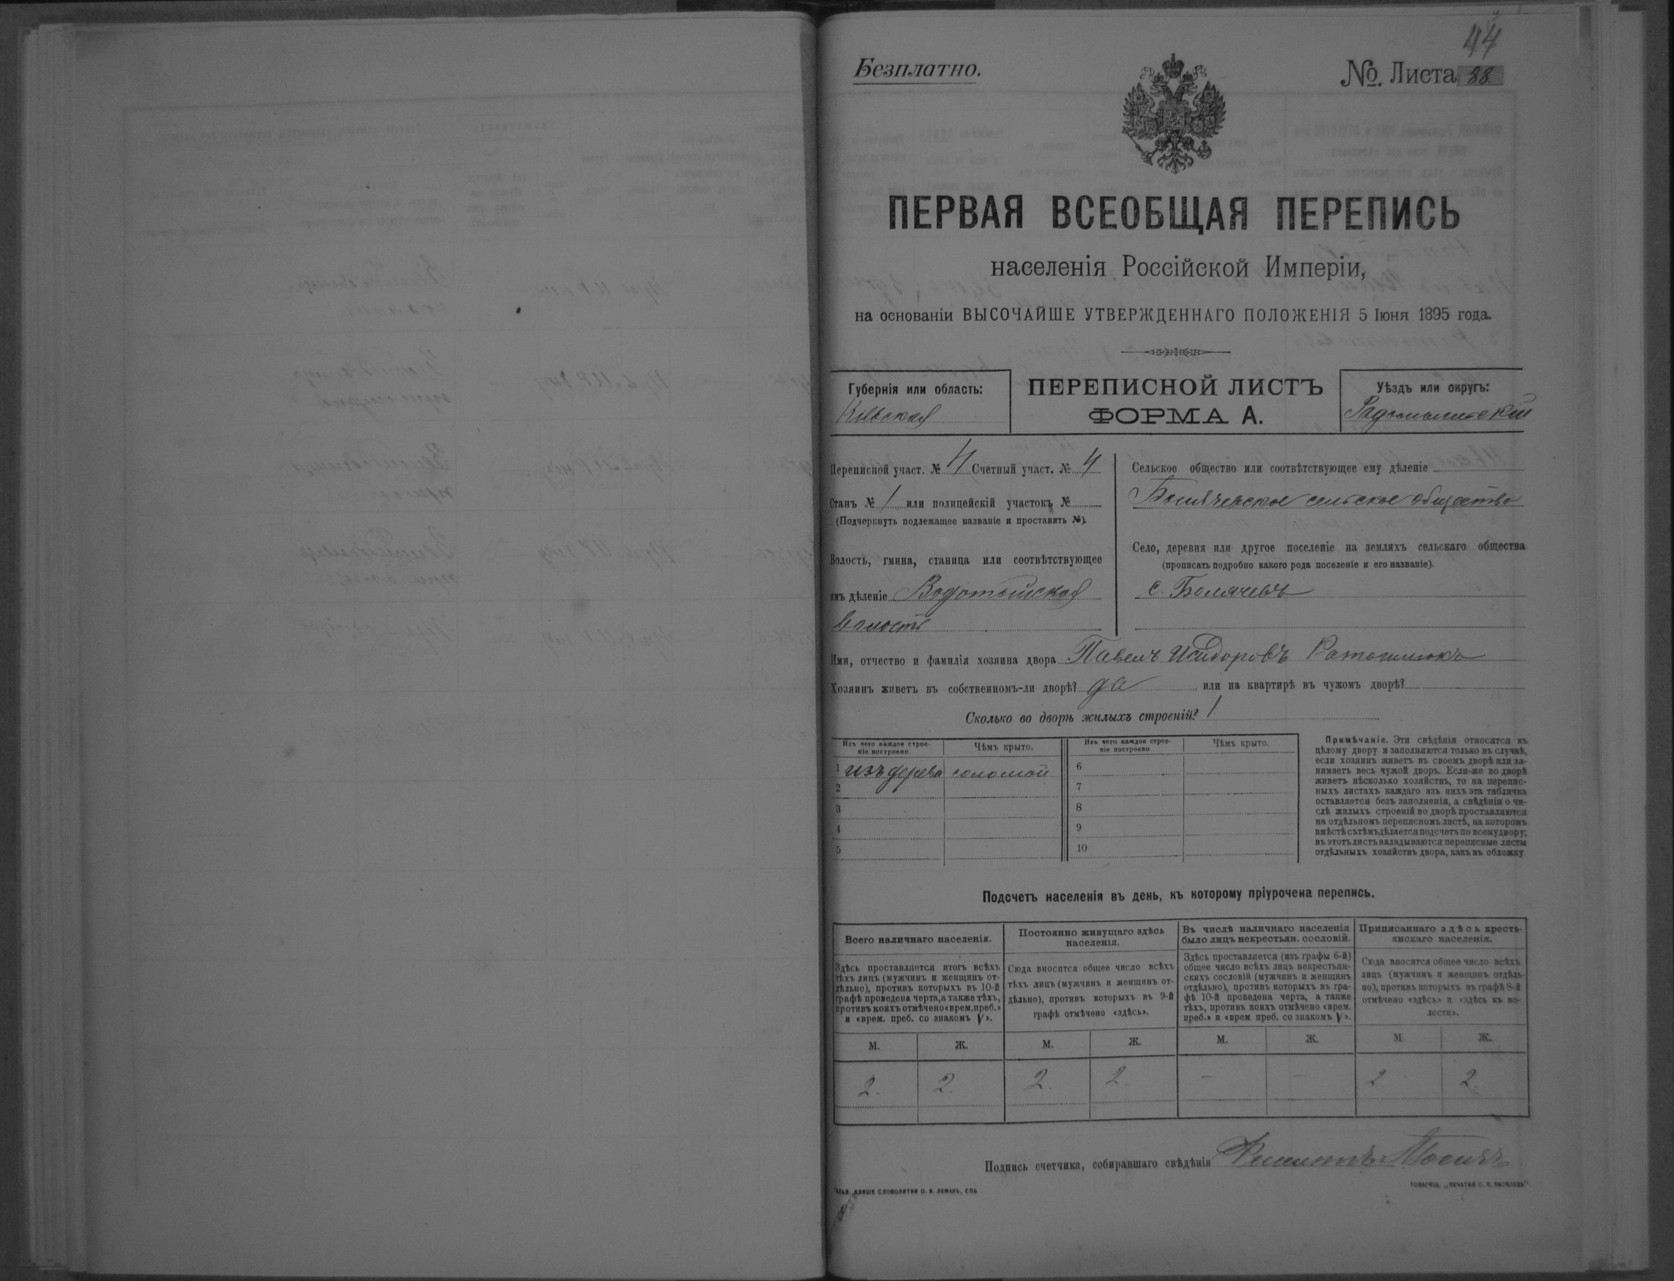 44
Безплатно.
№ Листа 88
ПЕРВАЯ ВСЕОБЩАЯ ПЕРЕПИСЬ
населенія Россійской Имперіи,
на основаніи ВЫСОЧАЙШЕ УТВЕРЖДЕННАГО ПОЛОЖЕНІЯ 5 Іюня 1895 года.
Губернія или область:
Кіевская
ПЕРЕПИСНОЙ ЛИСТЪ
ФОРМА А.
Уѣздъ или округъ:
Радомысльскій
Переписной участ. № 4 Счетный участ. № 4
Станъ № 1 или полицейскій участокъ №
(Подчеркнуть подлежащее названіе и проставить №).
Волость, гмина, станица или соотвѣтствующее
имъ дѣленіе Водотыйская
волость
Сельское общество или соотвѣтствующее ему дѣленіе
Болячевское сельское общество
Село, деревня или другое поселеніе на земляхъ сельскаго общества
(прописать подробно какого рода поселеніе и его названіе).
с. Болячевъ
Имя, отчество и фамилія хозяина двора Павелъ Исидоровъ
Хозяинъ живетъ въ собственномъ-ли дворѣ? да или на квартирѣ въ чужомъ дворѣ?
Сколько во дворѣ жилыхъ строеній? 1
Изъ чего каждое строе-
ніе построено.
Чѣмъ крыто.
Изъ чего каждое строе-
ніе построено
Чѣмъ крыто.
1 изъ дерева соломой
2
3
4
5
6
7
8
9
10
Примѣчаніе. Эти свѣдѣнія относятся къ
цѣлому двору и заполняются только въ случаѣ,
если хозяинъ живетъ въ своемъ дворѣ или за-
нимаетъ весь чужой дворъ. Если-же во дворѣ
живетъ нѣсколько хозяйствъ, то на перепис-
ныхъ листахъ каждаго изъ нихъ эта табличка
оставляется безъ заполненія, а свѣдѣнія о чи-
слѣ жилыхъ строеній во дворѣ проставляются
на отдѣльномъ переписномъ листѣ, на которомъ
вмѣстѣ съ тѣмъ дѣлается подсчетъ по всему двору;
въ этотъ листъ вкладываются переписные листы
отдѣльныхъ хозяйствъ двора, какъ въ обложку
Подсчетъ населенія въ день, къ которому пріурочена перепись.
Всего наличнаго населенія.
Здѣсь проставляется итогъ всѣхъ
тѣхъ лицъ (мужчинъ и женщинъ от-
дѣльно), противъ которыхъ въ 10-й
графѣ проведена черта, а также тѣхъ,
противъ коихъ отмѣчено «врем. преб.»
и «врем. преб. со знакомъ V».
Постоянно живущаго здѣсь
населенія.
Сюда вносится общее число всѣхъ
тѣхъ лицъ (мужчинъ и женщинъ от-
дѣльно), противъ которыхъ въ 9-й
графѣ отмѣчено «здѣсь».
Въ числѣ наличнаго населенія
было лицъ некрестьян. сословій.
Здѣсь проставляется (изъ графы 6-й)
общее число всѣхъ лицъ некрестьян-
скихъ сословій (мужчинъ и женщинъ
отдѣльно), противъ которыхъ въ гра-
фѣ 10-й проведена черта, а также
тѣхъ, противъ коихъ отмѣчено «врем.
преб.» и «врем преб. со знакомъ V».
Приписаннаго здѣсь кресть-
янскаго населенія.
Сюда вносится общее число всѣхъ
лицъ (мужчинъ и женщинъ отдѣль-
но), противъ которыхъ въ графѣ 8-й
отмѣчено «здѣсь» и «здѣсь въ во-
лости».
М. Ж. М. Ж. М. Ж. М. Ж.
2 2 2 2 – – 2 2
Подпись счетчика, собиравшаго свѣдѣнія
СЛОВОЛИТНИ О. И. ЛЕМАНЪ, СПБ